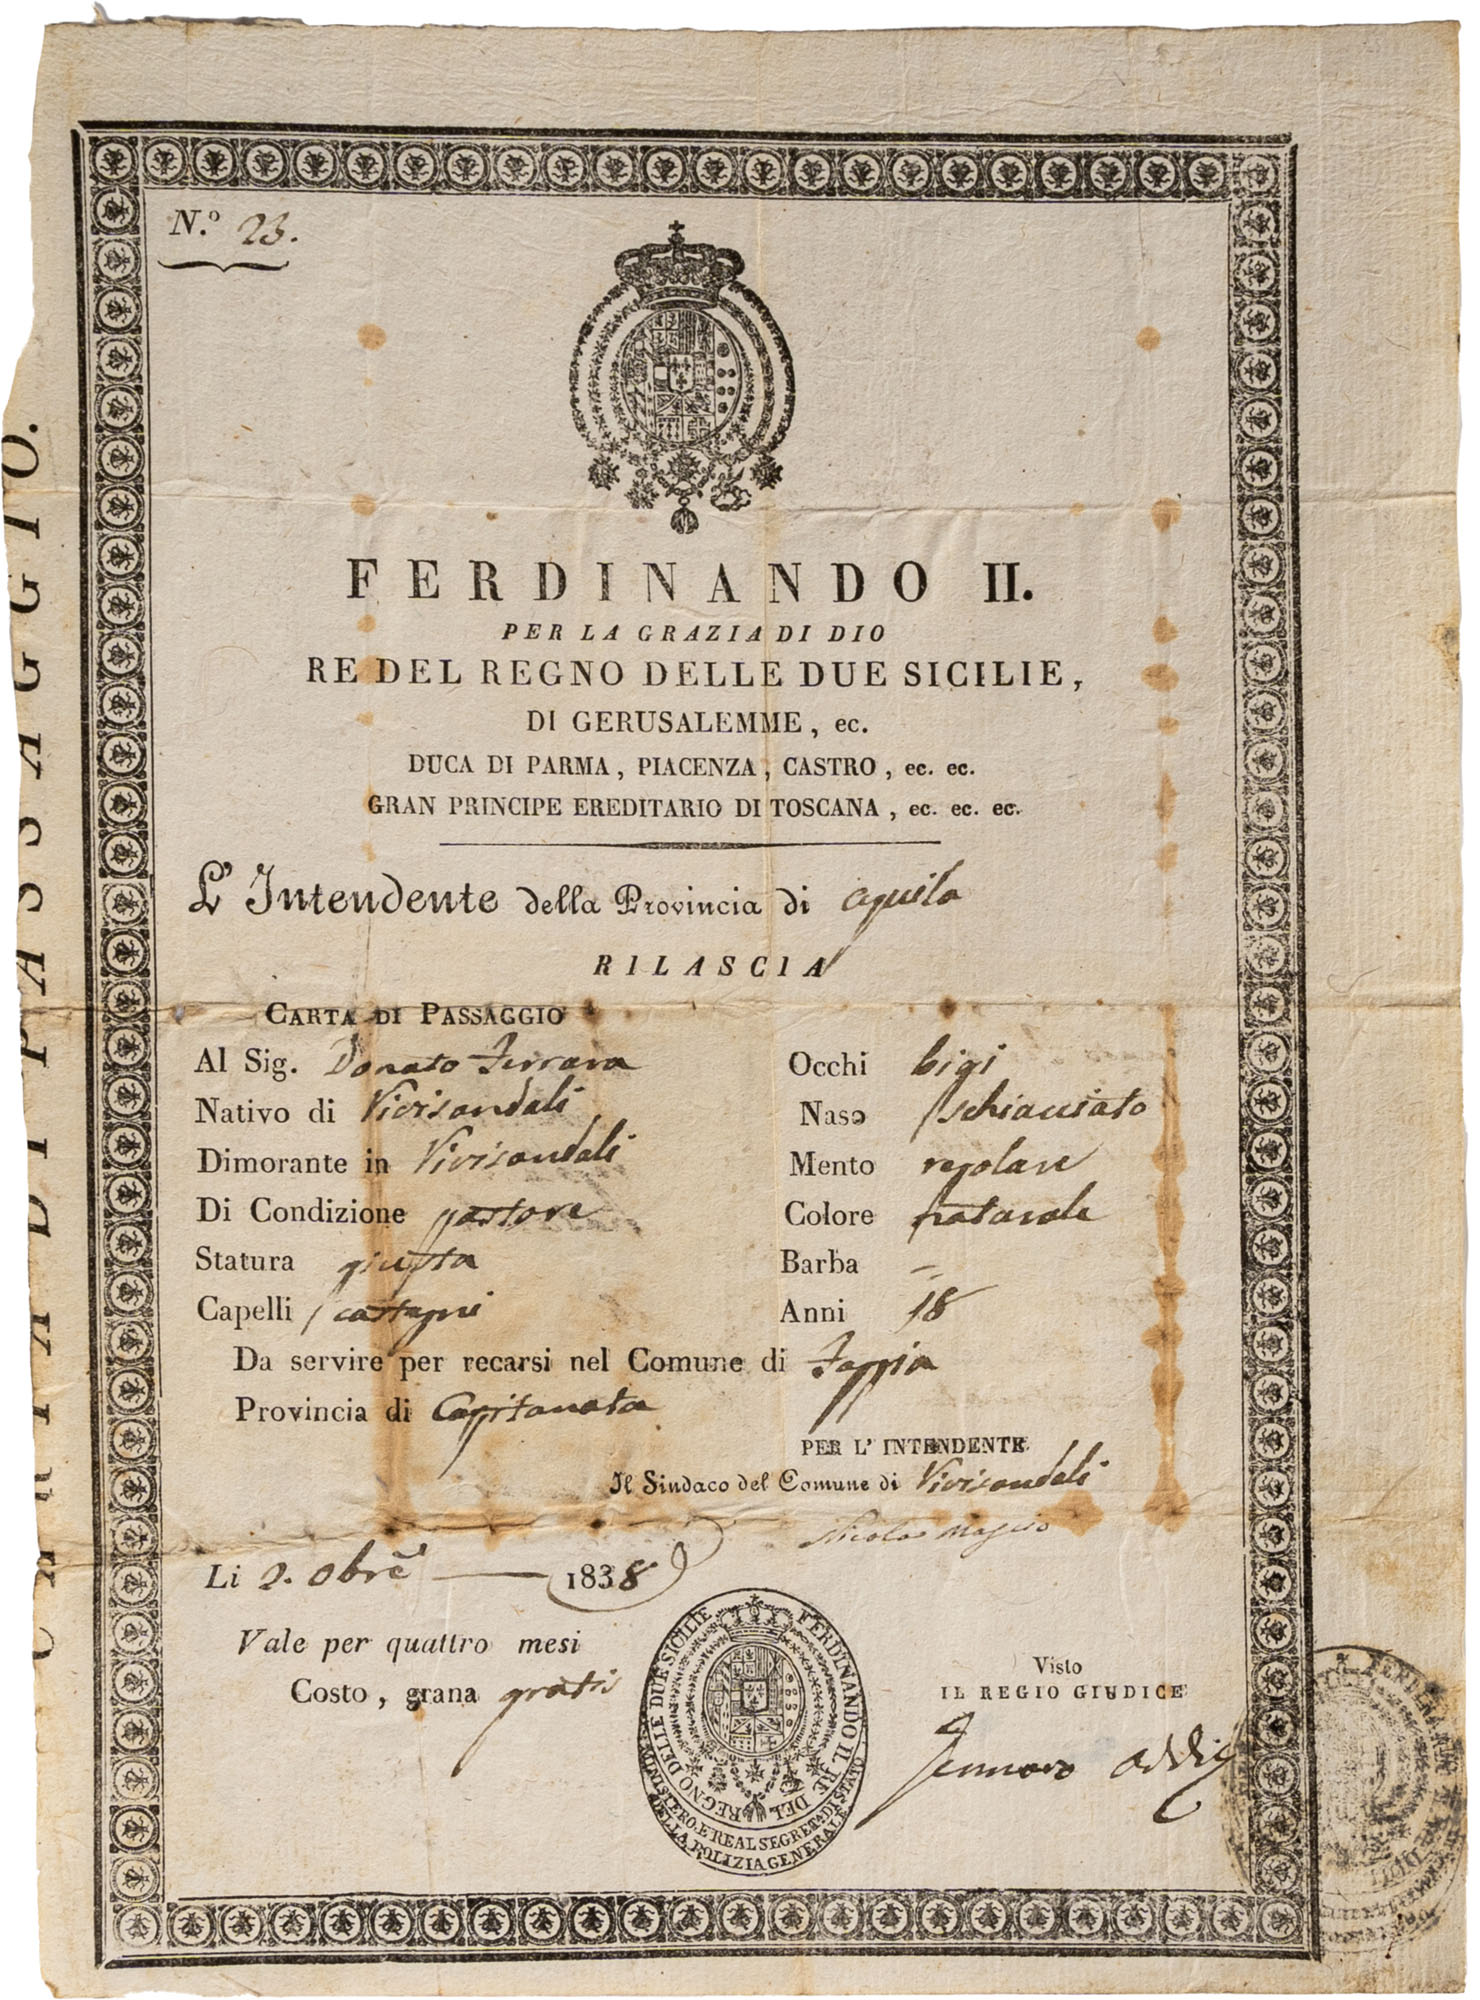 N.º 23.
FERDINANDO II.
PER LA GRAZIA DI DIO
RE DEL REGNO DELLE DUE SICILIE,
DI GERUSALEMME, ec.
DUCA DI PARMA, PIACENZA, CASTRO, ec. ec.
GRAN PRINCIPE EREDITARIO DI TOSCANA, ec. ec. ec.
L'Intendente della Provincia di Aquila
RILASCIA
CARTA DI PASSAGGIO
Al Sig. Donato Ferrara
Nativo di Vivisondoli
Dimorante in Vivisondoli
Di Condizione pastore
Statura giusta
Capelli castagni
Occhi bigi
Naso schiacciato
Mento regolare
Colore naturale
Barba –
Anni 18
Da servire per recarsi nel Comune di Foggia
Provincia di Capitanata
PER L'INTENDENTE
Il Sindaco del Comune di Vivisondoli
Nicola
Li 2. 8bre 1838
Vale per quattro mesi
Costo, grana gratis
Visto
IL REGIO GIUDICE
Gennaro
FERDINANDO II. RE DEL REGNO DELLE DUE SICILIE
MINISTERO E REAL SEGRETA DI STATO DELLA POLIZIA GENERALE
CARTA DI PASSAGGIO.